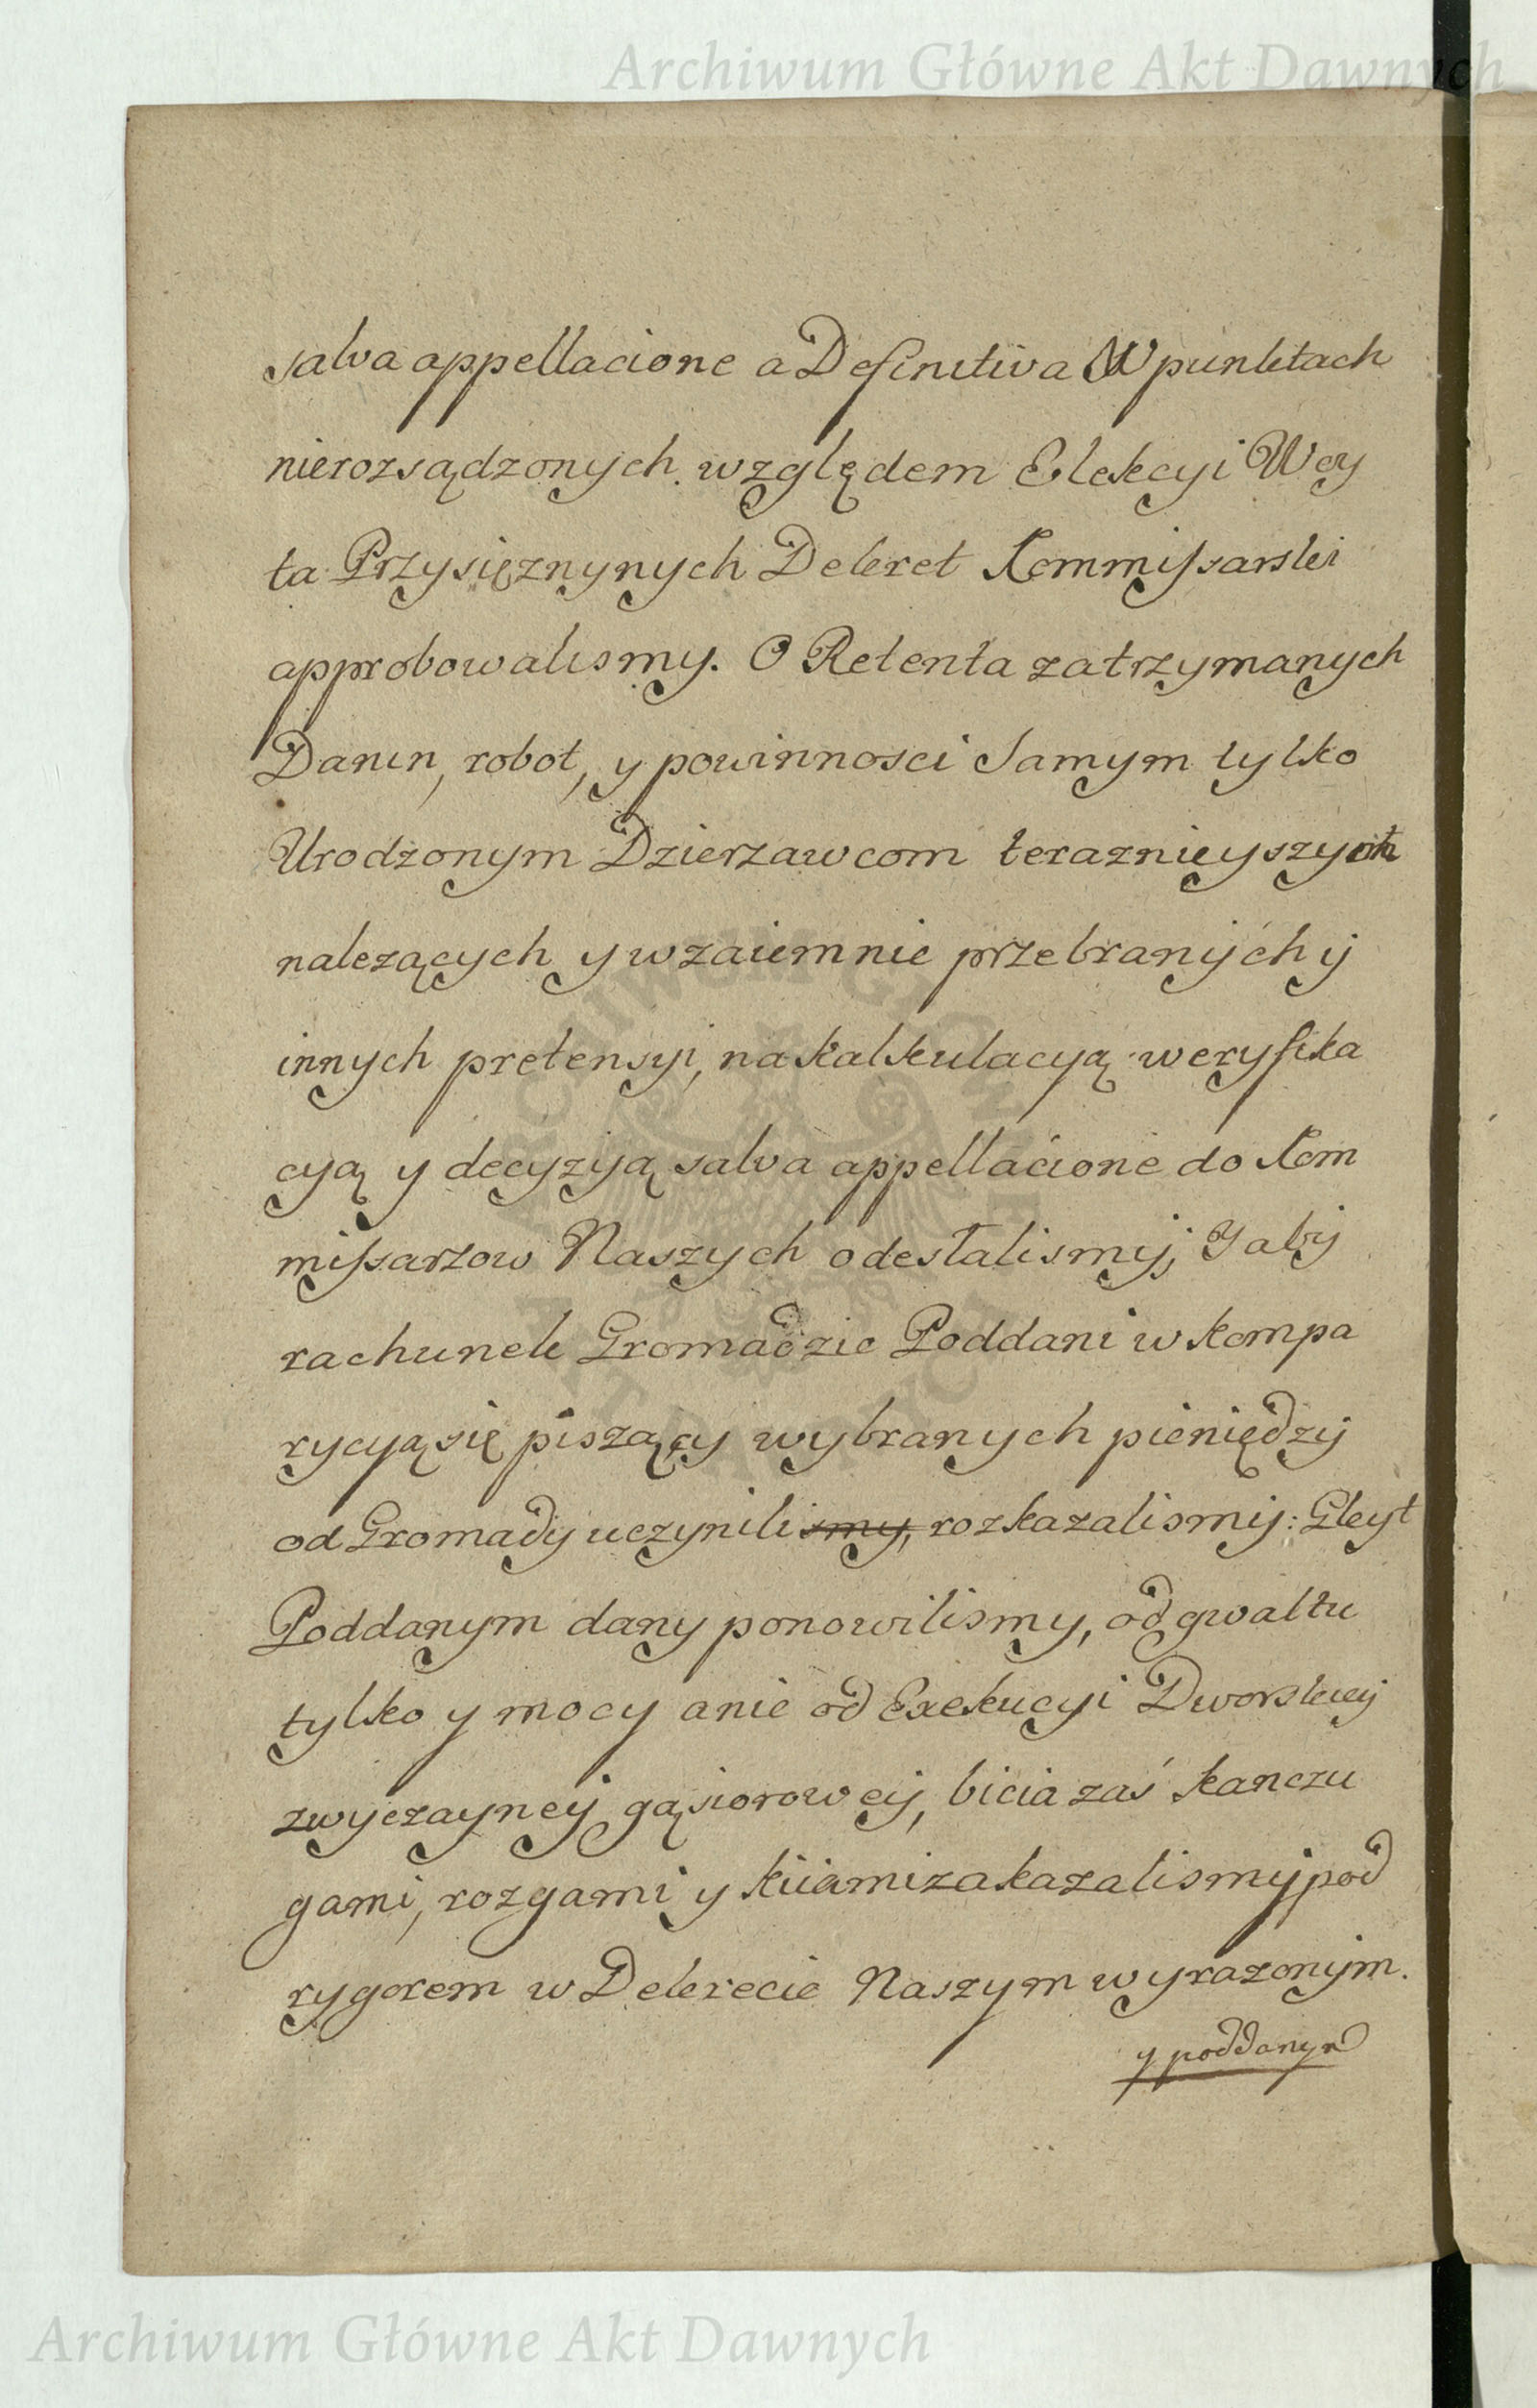 Archiwum Główne Akt Dawnych
salva appellacione a Definitiva W punktach
nierozsądzonych względem Elekcyi Woy
ta Przysięznynych Dekret Kommissarski
approbowalismy. O Retenta zatrzymanych
Danin, robot, y powinnosci Samym tylko
Urodzonym Dzierzawcom teraznieyszych
nalezących y wzaiemnie przebranych y
innych pretensyi, na kalkulacyą weryfika
cyą y decyzyą salva appellacione do Kom
missarzow Naszych odesłalismy, Y aby
rachunek Gromadzie Poddani w kompa
rycyą się piszący wybranych pieniędzy
od Gromady uczynilismy, rozkazalismy: Gleyt
Poddanym dany ponowilismy, od gwałtu
tylko y mocy a nie od Exekucyi Dworskiey
zwyczayney gąsiorowey, bicia zaś kanczu
gami, rozgami y kiiami zakazalismy pod
rygorem w Dekrecie Naszym wyrazonym.
y poddanym
Archiwum Główne Akt Dawnych